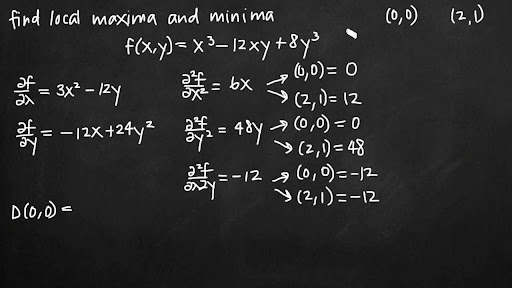 find local maxima and minima (0,0) (2,1)
f(x,y) = x³ - 12xy + 8y³
∂f/∂x = 3x² - 12y ∂²f/∂x² = 6x → (0,0) = 0
→ (2,1) = 12
∂f/∂y = -12x + 24y² ∂²f/∂y² = 48y → (0,0) = 0
→ (2,1) = 48
∂²f/∂x∂y = -12 → (0,0) = -12
→ (2,1) = -12
D(0,0) =